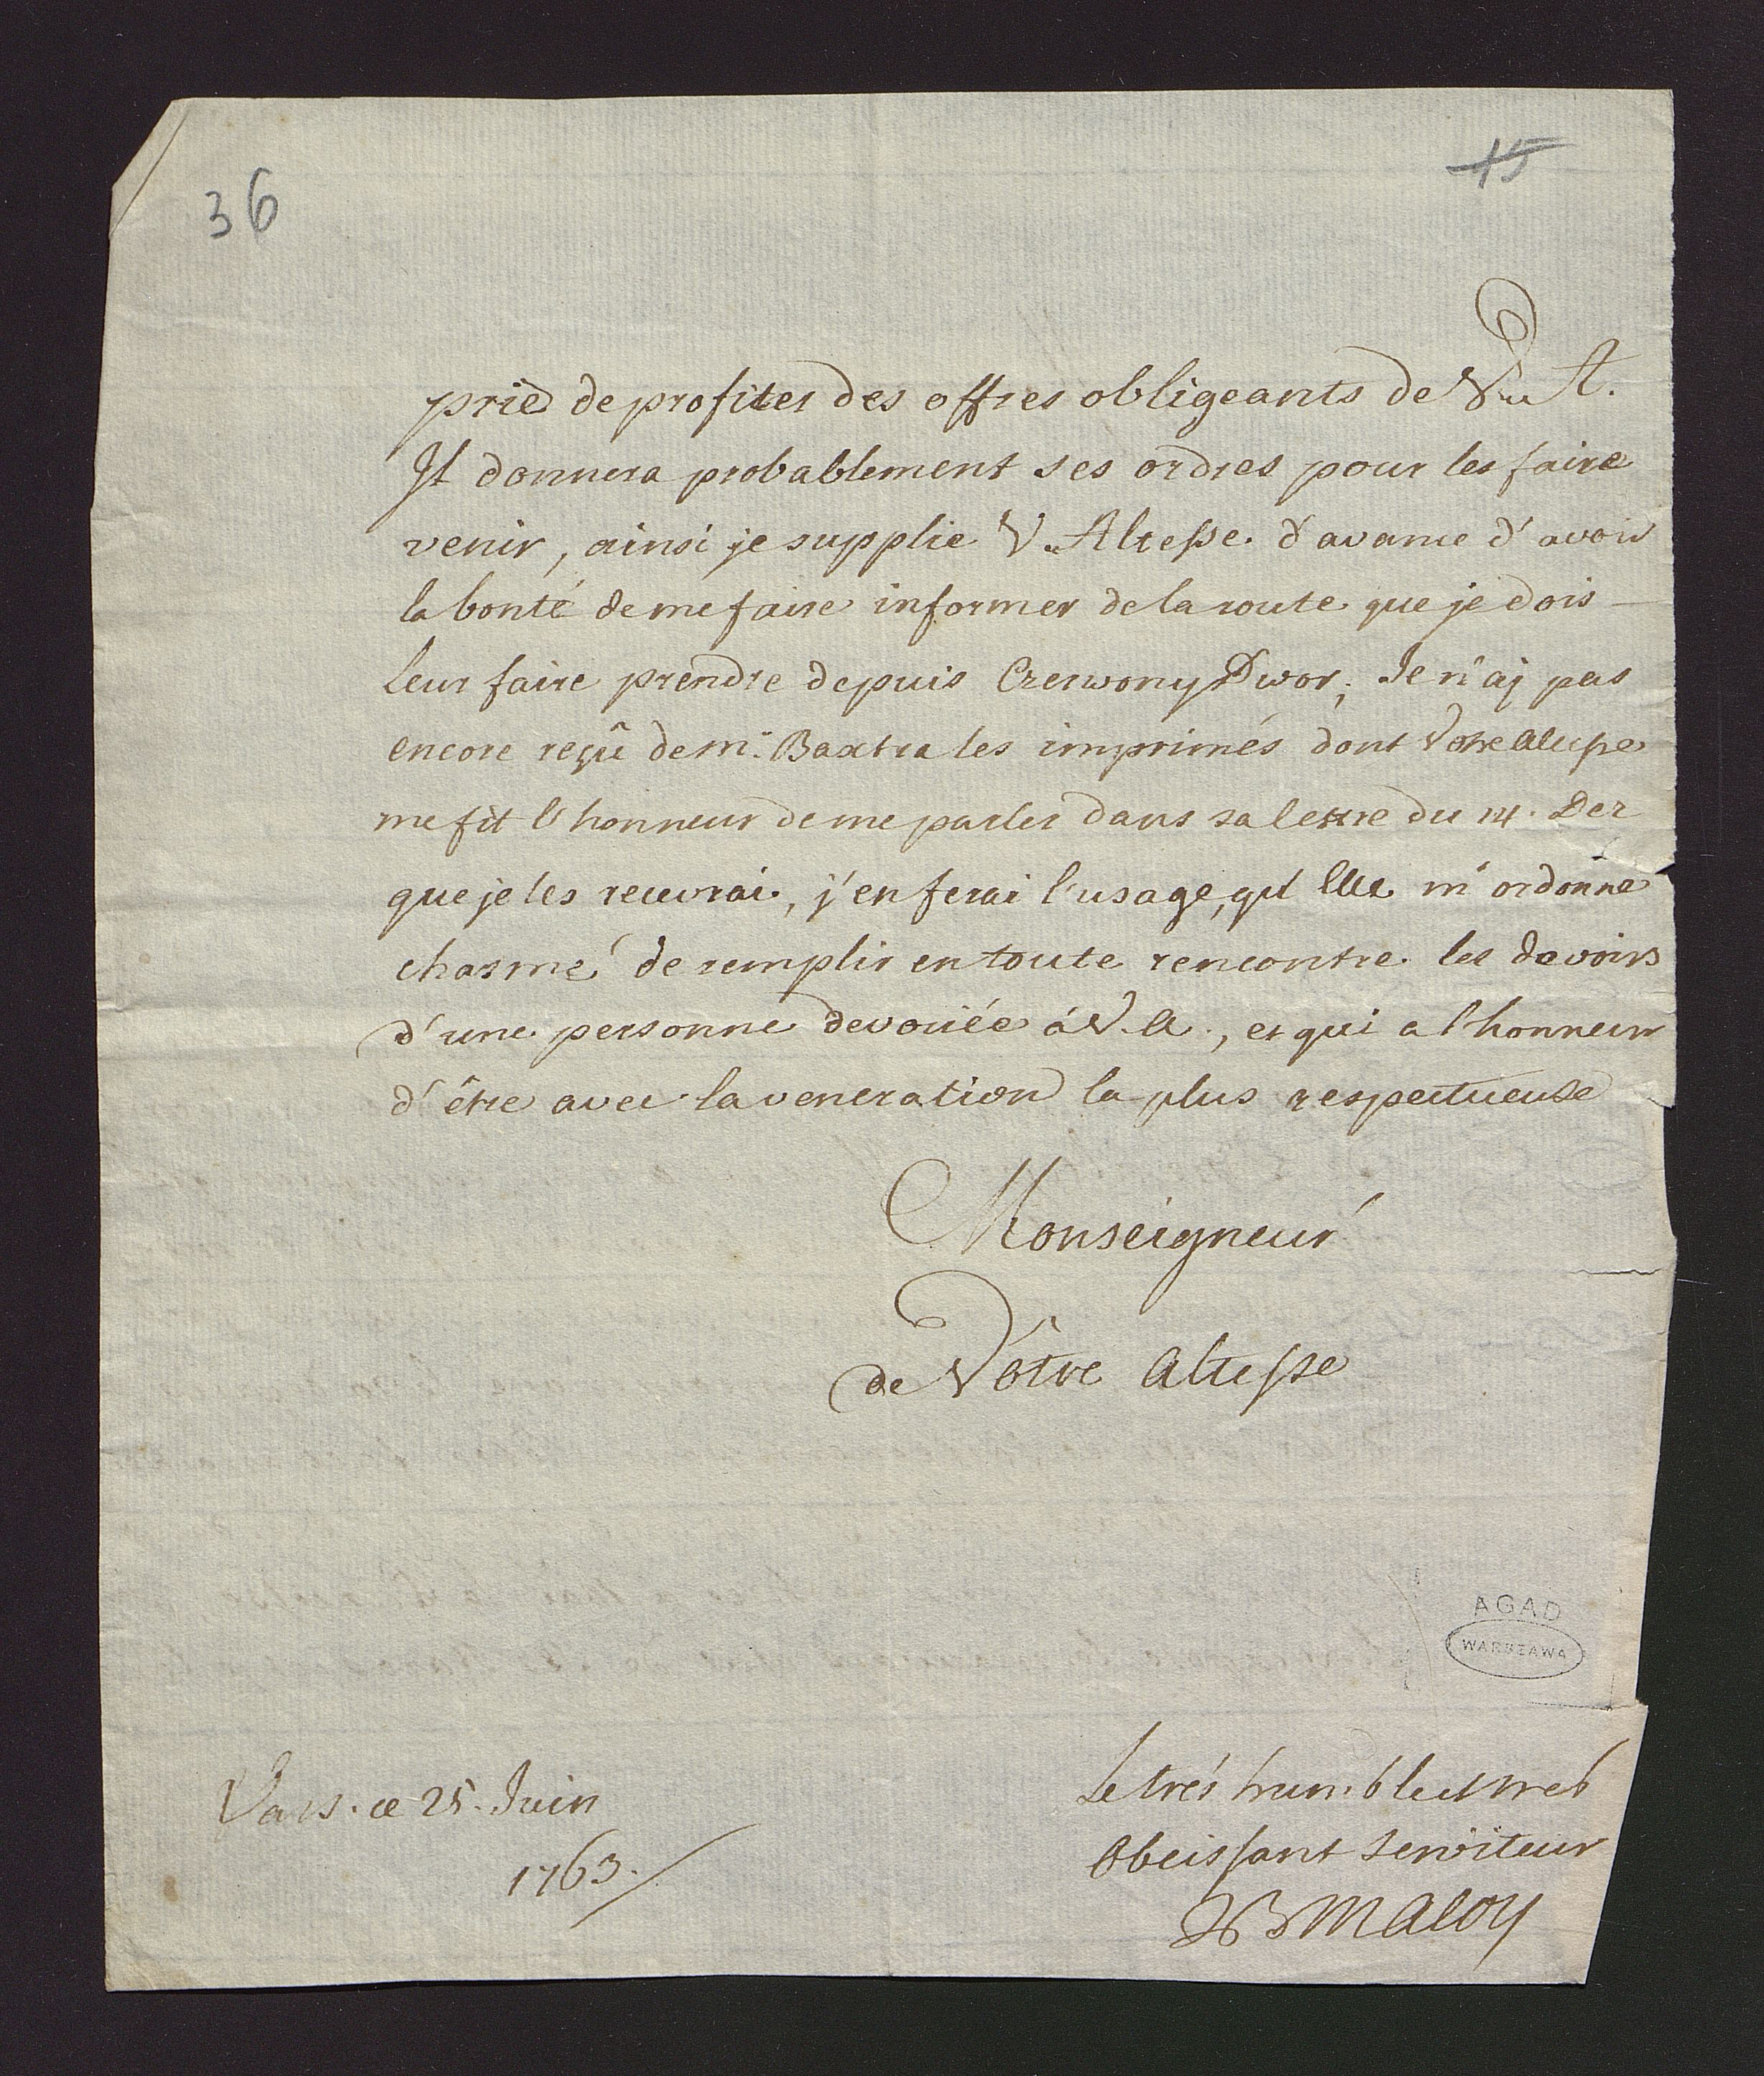 36
15
prie de profiter des offres obligeants de V. A.
Il donnera probablement ses ordres pour les faire
venir, ainsi je supplie V. Altesse d'avance d'avoir
la bonté de me faire informer de la route que je dois
leur faire prendre depuis Czerwony Dwor; Je n'aj pas
encore reçû de Mr. Baxtra les imprimés dont Votre Altesse
me fit l'honneur de me parler dans sa lettre du 14. Dez
que je les recevrai, j'en ferai l'usage, qu'Elle m'ordonne
charmé de remplir en toute rencontre les devoirs
d'une personne devouée à V. A., et qui a l'honneur
d'être avec la veneration la plus respectueuse
Monseigneur
de Vôtre Altesse
AGAD
WARSZAWA
Vars. ce 25. Juin
1763.
Le trés humble et tres
Obeissant Serviteur
Maloy